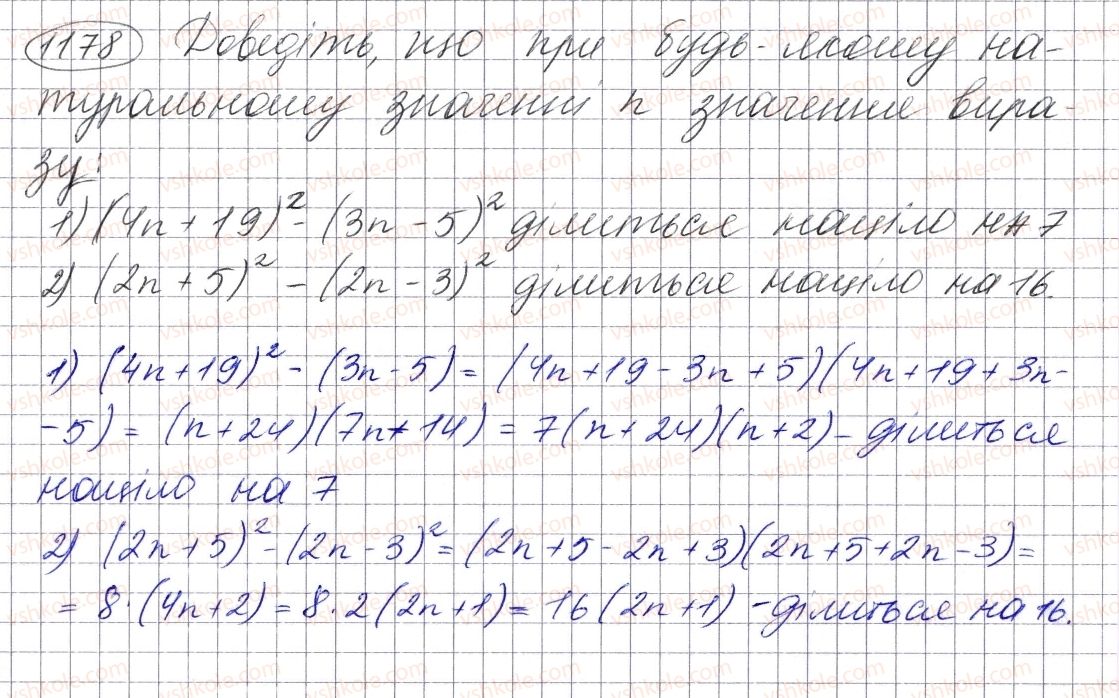 1178 Доведіть, що при будь-якому на-
туральному значенні n значення вира-
зу:
1) (4n + 19)² - (3n - 5)² ділиться націло на 7
2) (2n + 5)² - (2n - 3)² ділиться націло на 16.
1) (4n + 19)² - (3n - 5) = (4n + 19 - 3n + 5)(4n + 19 + 3n -
- 5) = (n + 24)(7n + 14) = 7(n + 24)(n + 2) - ділиться
націло на 7
2) (2n + 5)² - (2n - 3)² = (2n + 5 - 2n + 3)(2n + 5 + 2n - 3) =
= 8 · (4n + 2) = 8 · 2 (2n + 1) = 16 (2n + 1) - ділиться на 16.